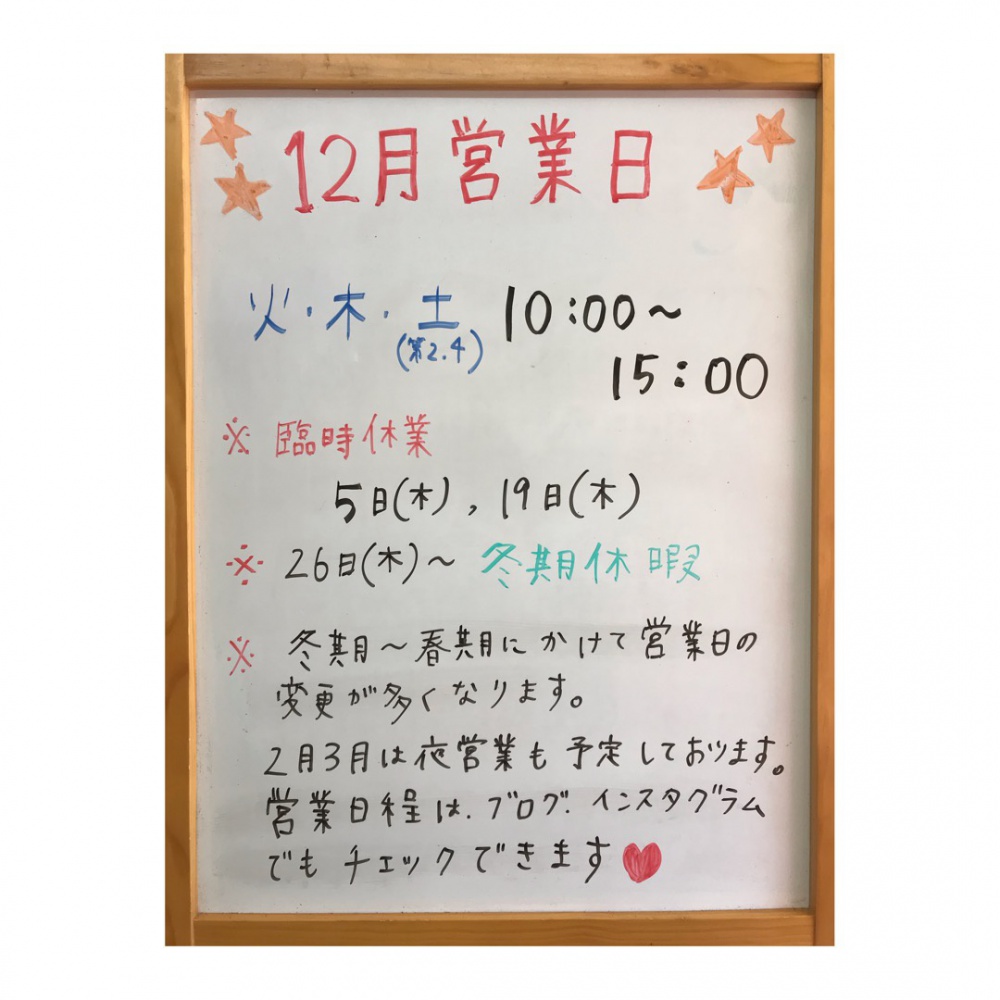 12月営業日
火・木・土 10:00〜
(第2.4)
15:00
※ 臨時休業
5日(木), 19日(木)
※ 26日(木)〜 冬期休暇
※ 冬期〜春期にかけて営業日の
変更が多くなります。
2月3月は夜営業も予定しております。
営業日程は、ブログ、インスタグラム
でもチェックできます